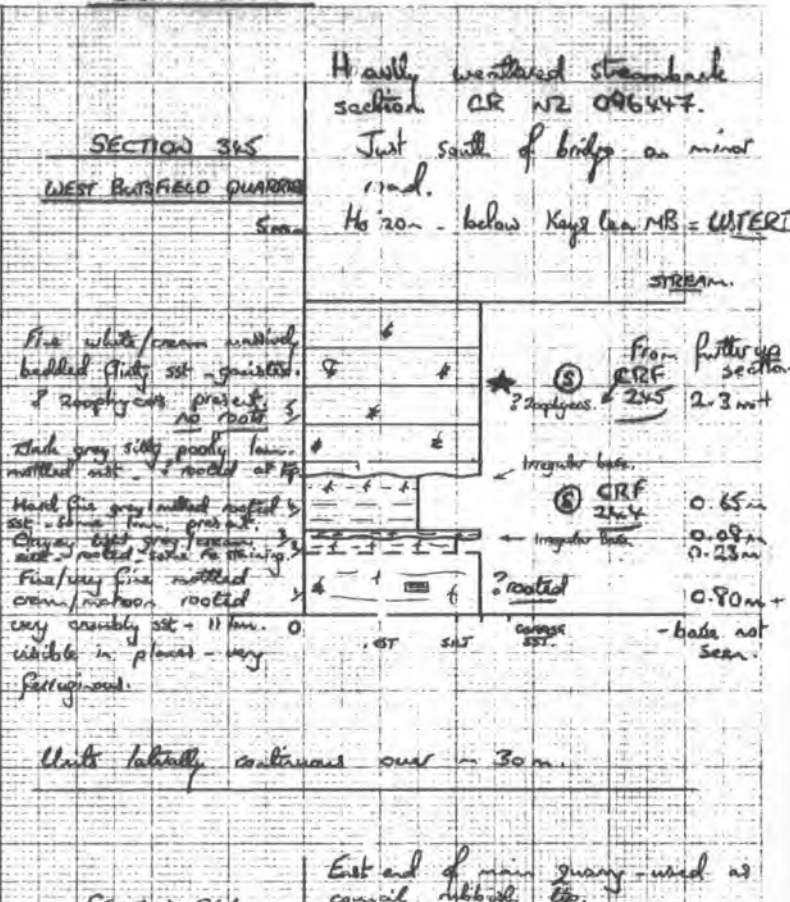 Heavily weathered streambank
section GR NZ 096447.
SECTION 345
Just south of bridge on minor
road.
WEST BUTSFIELD QUARRIES
5m
Horizon - below Kays Lea MB = USTERI
STREAM.
Fine white/cream massively
bedded flinty sst - ganister.
? Zoophycos present.
no roots
Dark grey silty poorly lam.
mottled sst - ? rooted at top
Hard fine grey/mottled rooted
sst - some lam. present.
Clayey light grey/cream
silt - rooted - some Fe staining.
Fine/very fine mottled
cream/maroon rooted
very crumbly sst - // lam.
visible in places - very
ferruginous.
From further up
section
S
CRF
245
? Zoophycos.
2.3m+
Irregular base.
S
CRF
244
0.65m
Irregular Base
0.08m
0.23m
? rooted
0.80m +
0
SILT
COARSE
SST.
- base not
seen.
Units laterally continuous over ~ 30m.
East end of main quarry - used as
council rubbish tip.